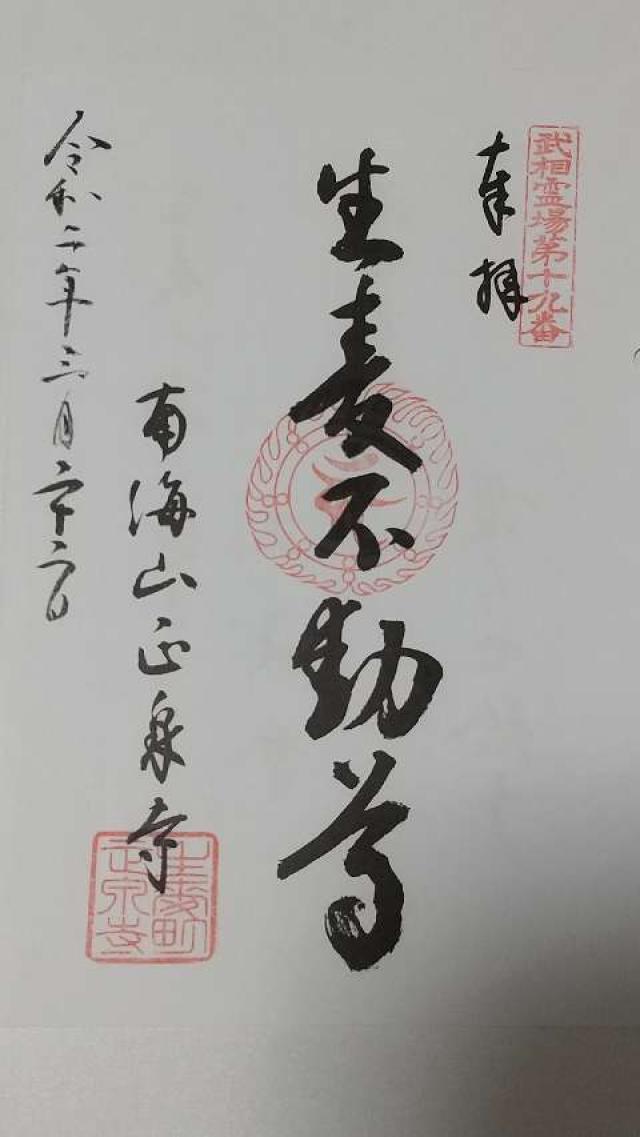 武相霊場第十九番
奉拝
生麦不動尊
南海山正泉寺
令和二年三月二十二日
生麦町
正泉寺